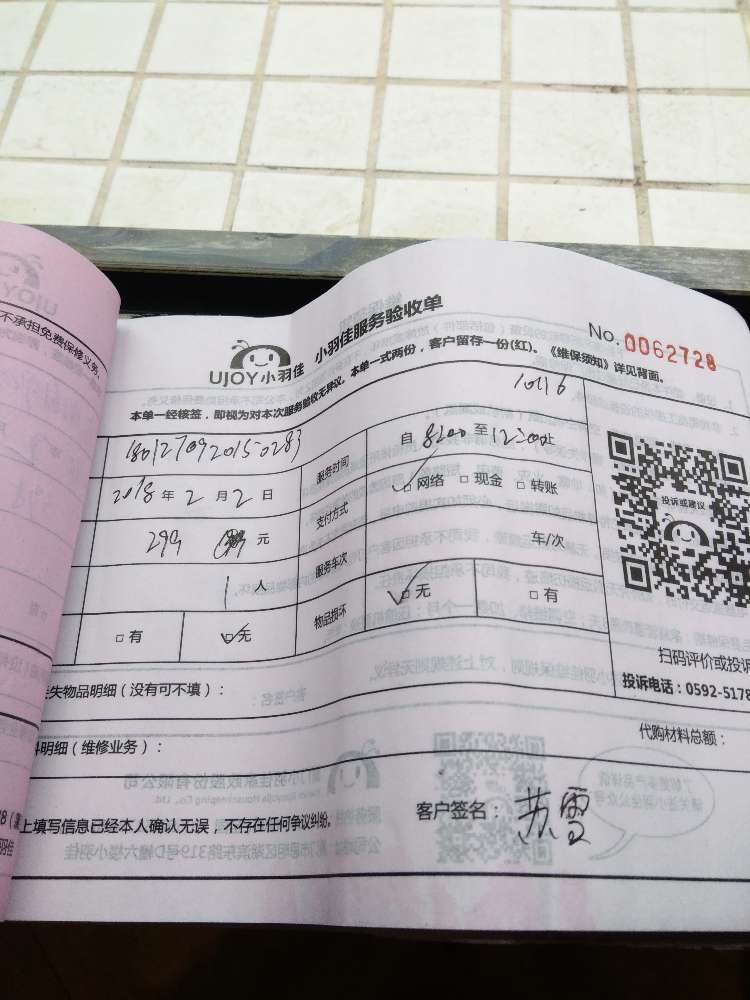 不承担免费保修义务。
UJOY小羽佳 小羽佳服务验收单
No. 0062728
本单一经核签，即视为对本次服务验收无异议。本单一式两份，客户留存一份(红)。《维保须知》详见背面。
10116
1801270920150283 服务时间 自 8:00 至 12:00止
2018 年 2 月 2 日 支付方式 网络 现金 转账
299 元 服务车次 车/次
1 人 物品损坏 无 有
有 无
投诉或建议
扫码评价或投诉
投诉电话：0592-5178
失物品明细（没有可不填）：
明细（维修业务）：
代购材料总额：
上填写信息已经本人确认无误，不存在任何争议纠纷。
客户签名：苏雪